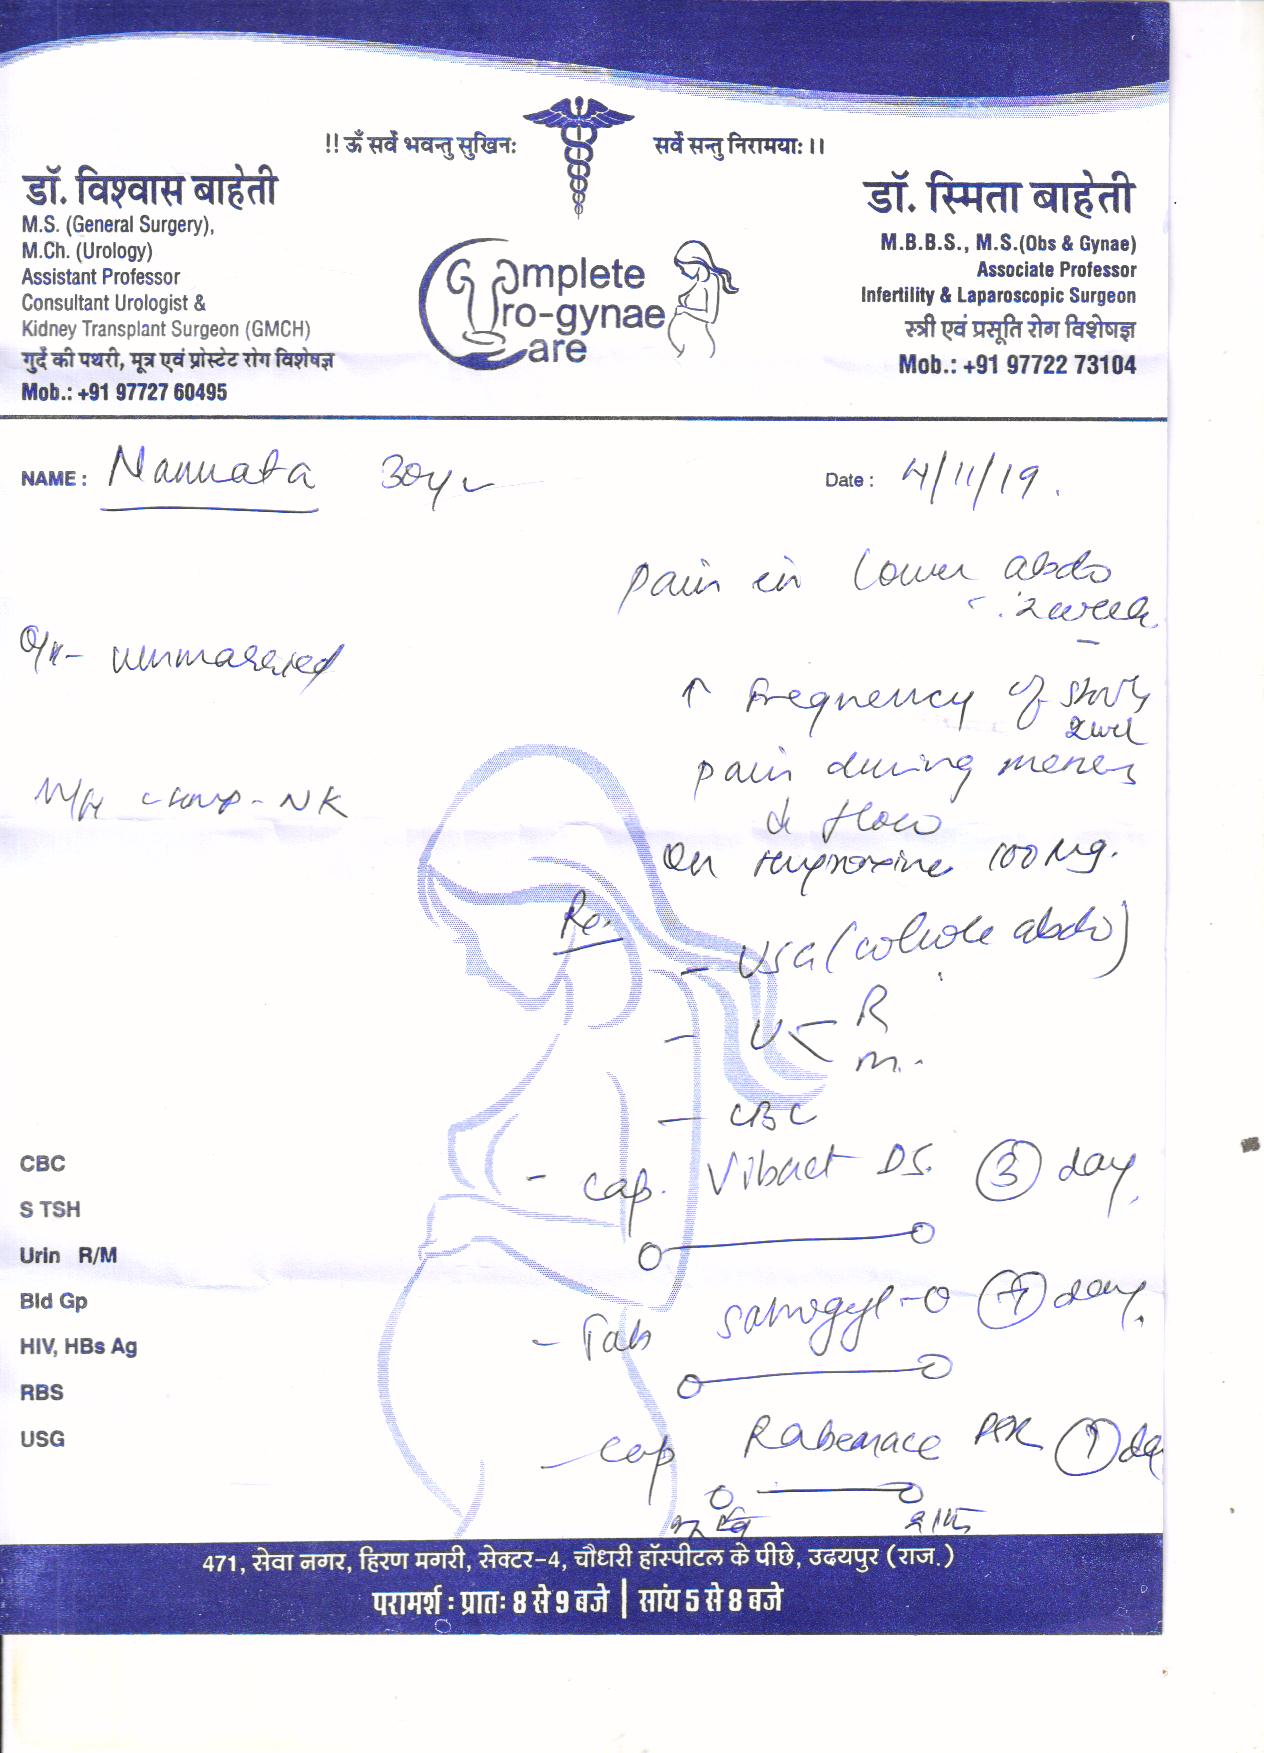 !! ॐ सर्वे भवन्तु सुखिनः सर्वे सन्तु निरामयाः ।।
डॉ. विश्वास बाहेती
M.S. (General Surgery),
M.Ch. (Urology)
Assistant Professor
Consultant Urologist &
Kidney Transplant Surgeon (GMCH)
गुर्दे की पथरी, मूत्र एवं प्रोस्टेट रोग विशेषज्ञ
Mob.: +91 97727 60495
Complete
Uro-gynae
Care
डॉ. स्मिता बाहेती
M.B.B.S., M.S.(Obs & Gynae)
Associate Professor
Infertility & Laparoscopic Surgeon
स्त्री एवं प्रसूति रोग विशेषज्ञ
Mob.: +91 97722 73104
NAME : Namrata 30yr Date : 4/11/19.
pain in lower abdo
2 week
O/H- unmarried
↑ Frequency of
pain during menses
M/H
& flow
On 100 Mg.
Rx.
- USG (whole abdo)
- U < R
M.
- CBC
- Cap. Vibact DS. (3) day
- Tab Satrogyl-O day
- cap Rabemac
CBC
S TSH
Urin R/M
Bld Gp
HIV, HBs Ag
RBS
USG
471, सेवा नगर, हिरण मगरी, सेक्टर-4, चौधरी हॉस्पीटल के पीछे, उदयपुर (राज.)
परामर्श : प्रातः 8 से 9 बजे | सांय 5 से 8 बजे